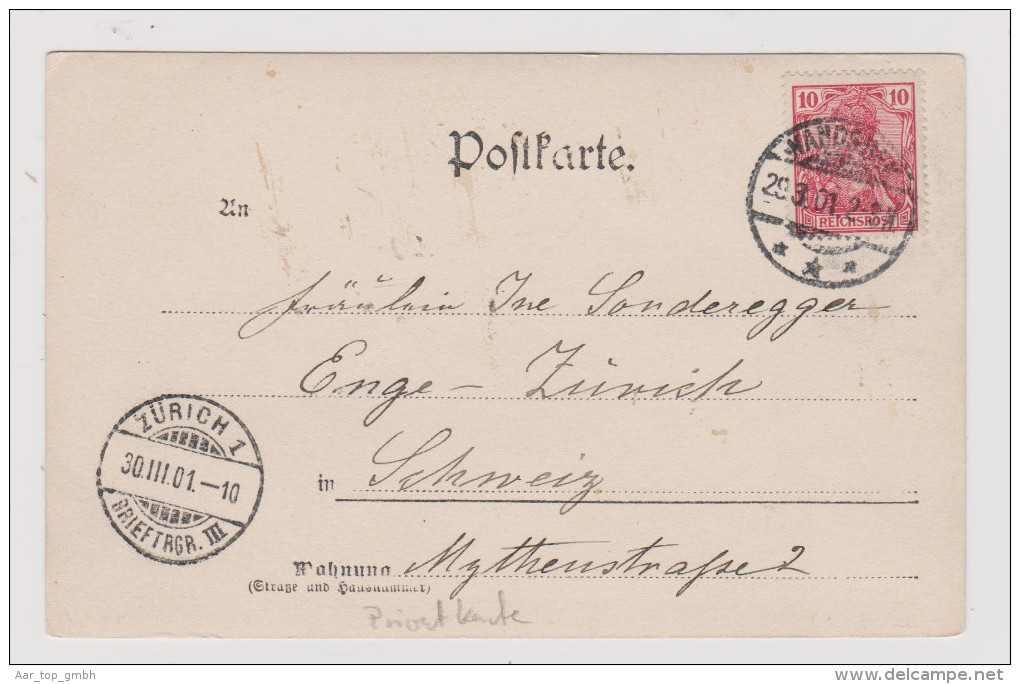 10 10
REICHSPOST
29.3.01
Postkarte.
An
Fräulein Ine Sonderegger
Enge - Zürich
in Schweiz
Wohnung Mythenstraße 2
(Straße und Hausnummer)
Privatkarte
ZÜRICH 1
30.III.01.—10
BRIEFTRGR. III
Aar_top_gmbh
delcampe.net